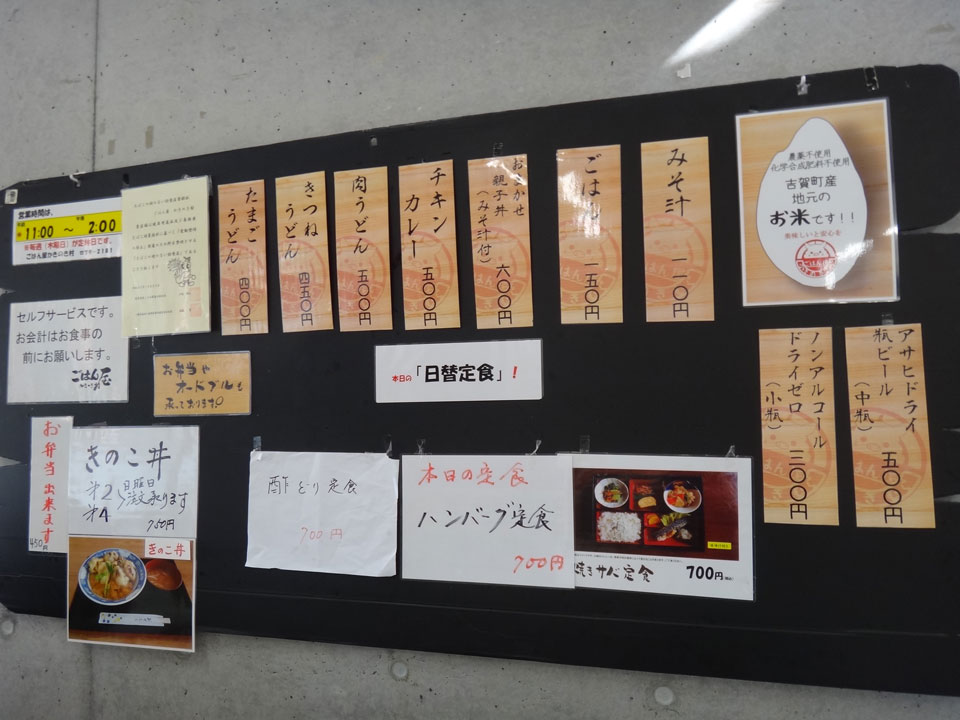 営業時間は、
午前 11:00 ～ 午後 2:00
※毎週「木曜日」が定休日です。
セルフサービスです。
お会計はお食事の
前にお願いします。
ごはん屋
お弁当出来ます
450円
きのこ丼
第2
第4
日曜日
注文承ります
750円
きのこ丼
たまご
うどん
四〇〇円
きつね
うどん
四五〇円
肉うどん
五〇〇円
チキン
カレー
五〇〇円
おまかせ
親子丼
(みそ汁付)
六〇〇円
ごはん
一五〇円
みそ汁
一一〇円
農薬不使用
化学合成肥料不使用
吉賀町産
地元の
お米です!!
美味しいと安心を
お弁当や
オードブルも
承っております
本日の「日替定食」!
酢どり定食
700円
本日の定食
ハンバーグ定食
700円
焼きサバ定食 700円(税込)
ノンアルコール
ドライゼロ
(小瓶)
三〇〇円
アサヒドライ
瓶ビール
(中瓶)
五〇〇円